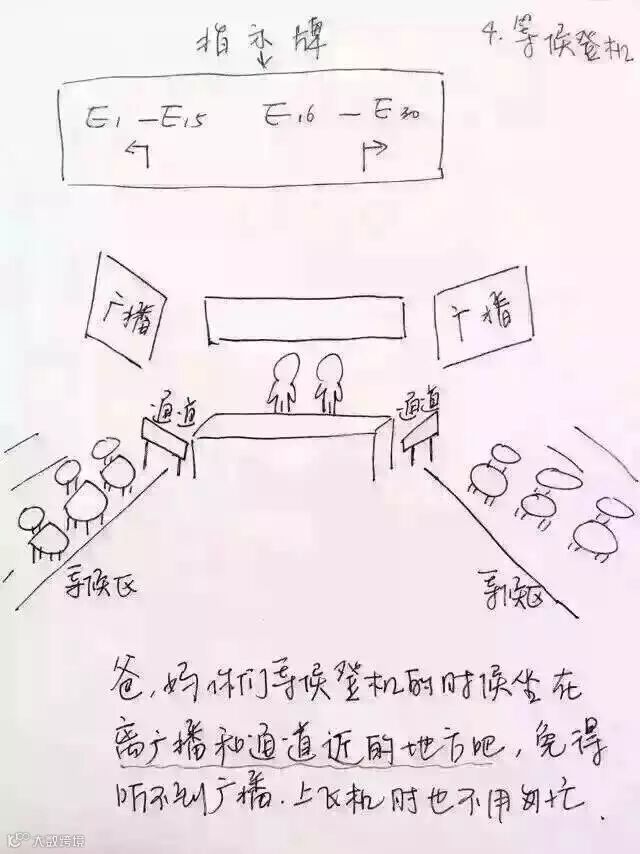 指示牌
4.等候登机
E1—E15 E16—E30
广播
广播
通道
通道
等候区
等候区
爸,妈你们等候登机的时候坐在
离广播和通道近的地方吧,免得
听不到广播.上飞机时也不用匆忙.
大数跨境